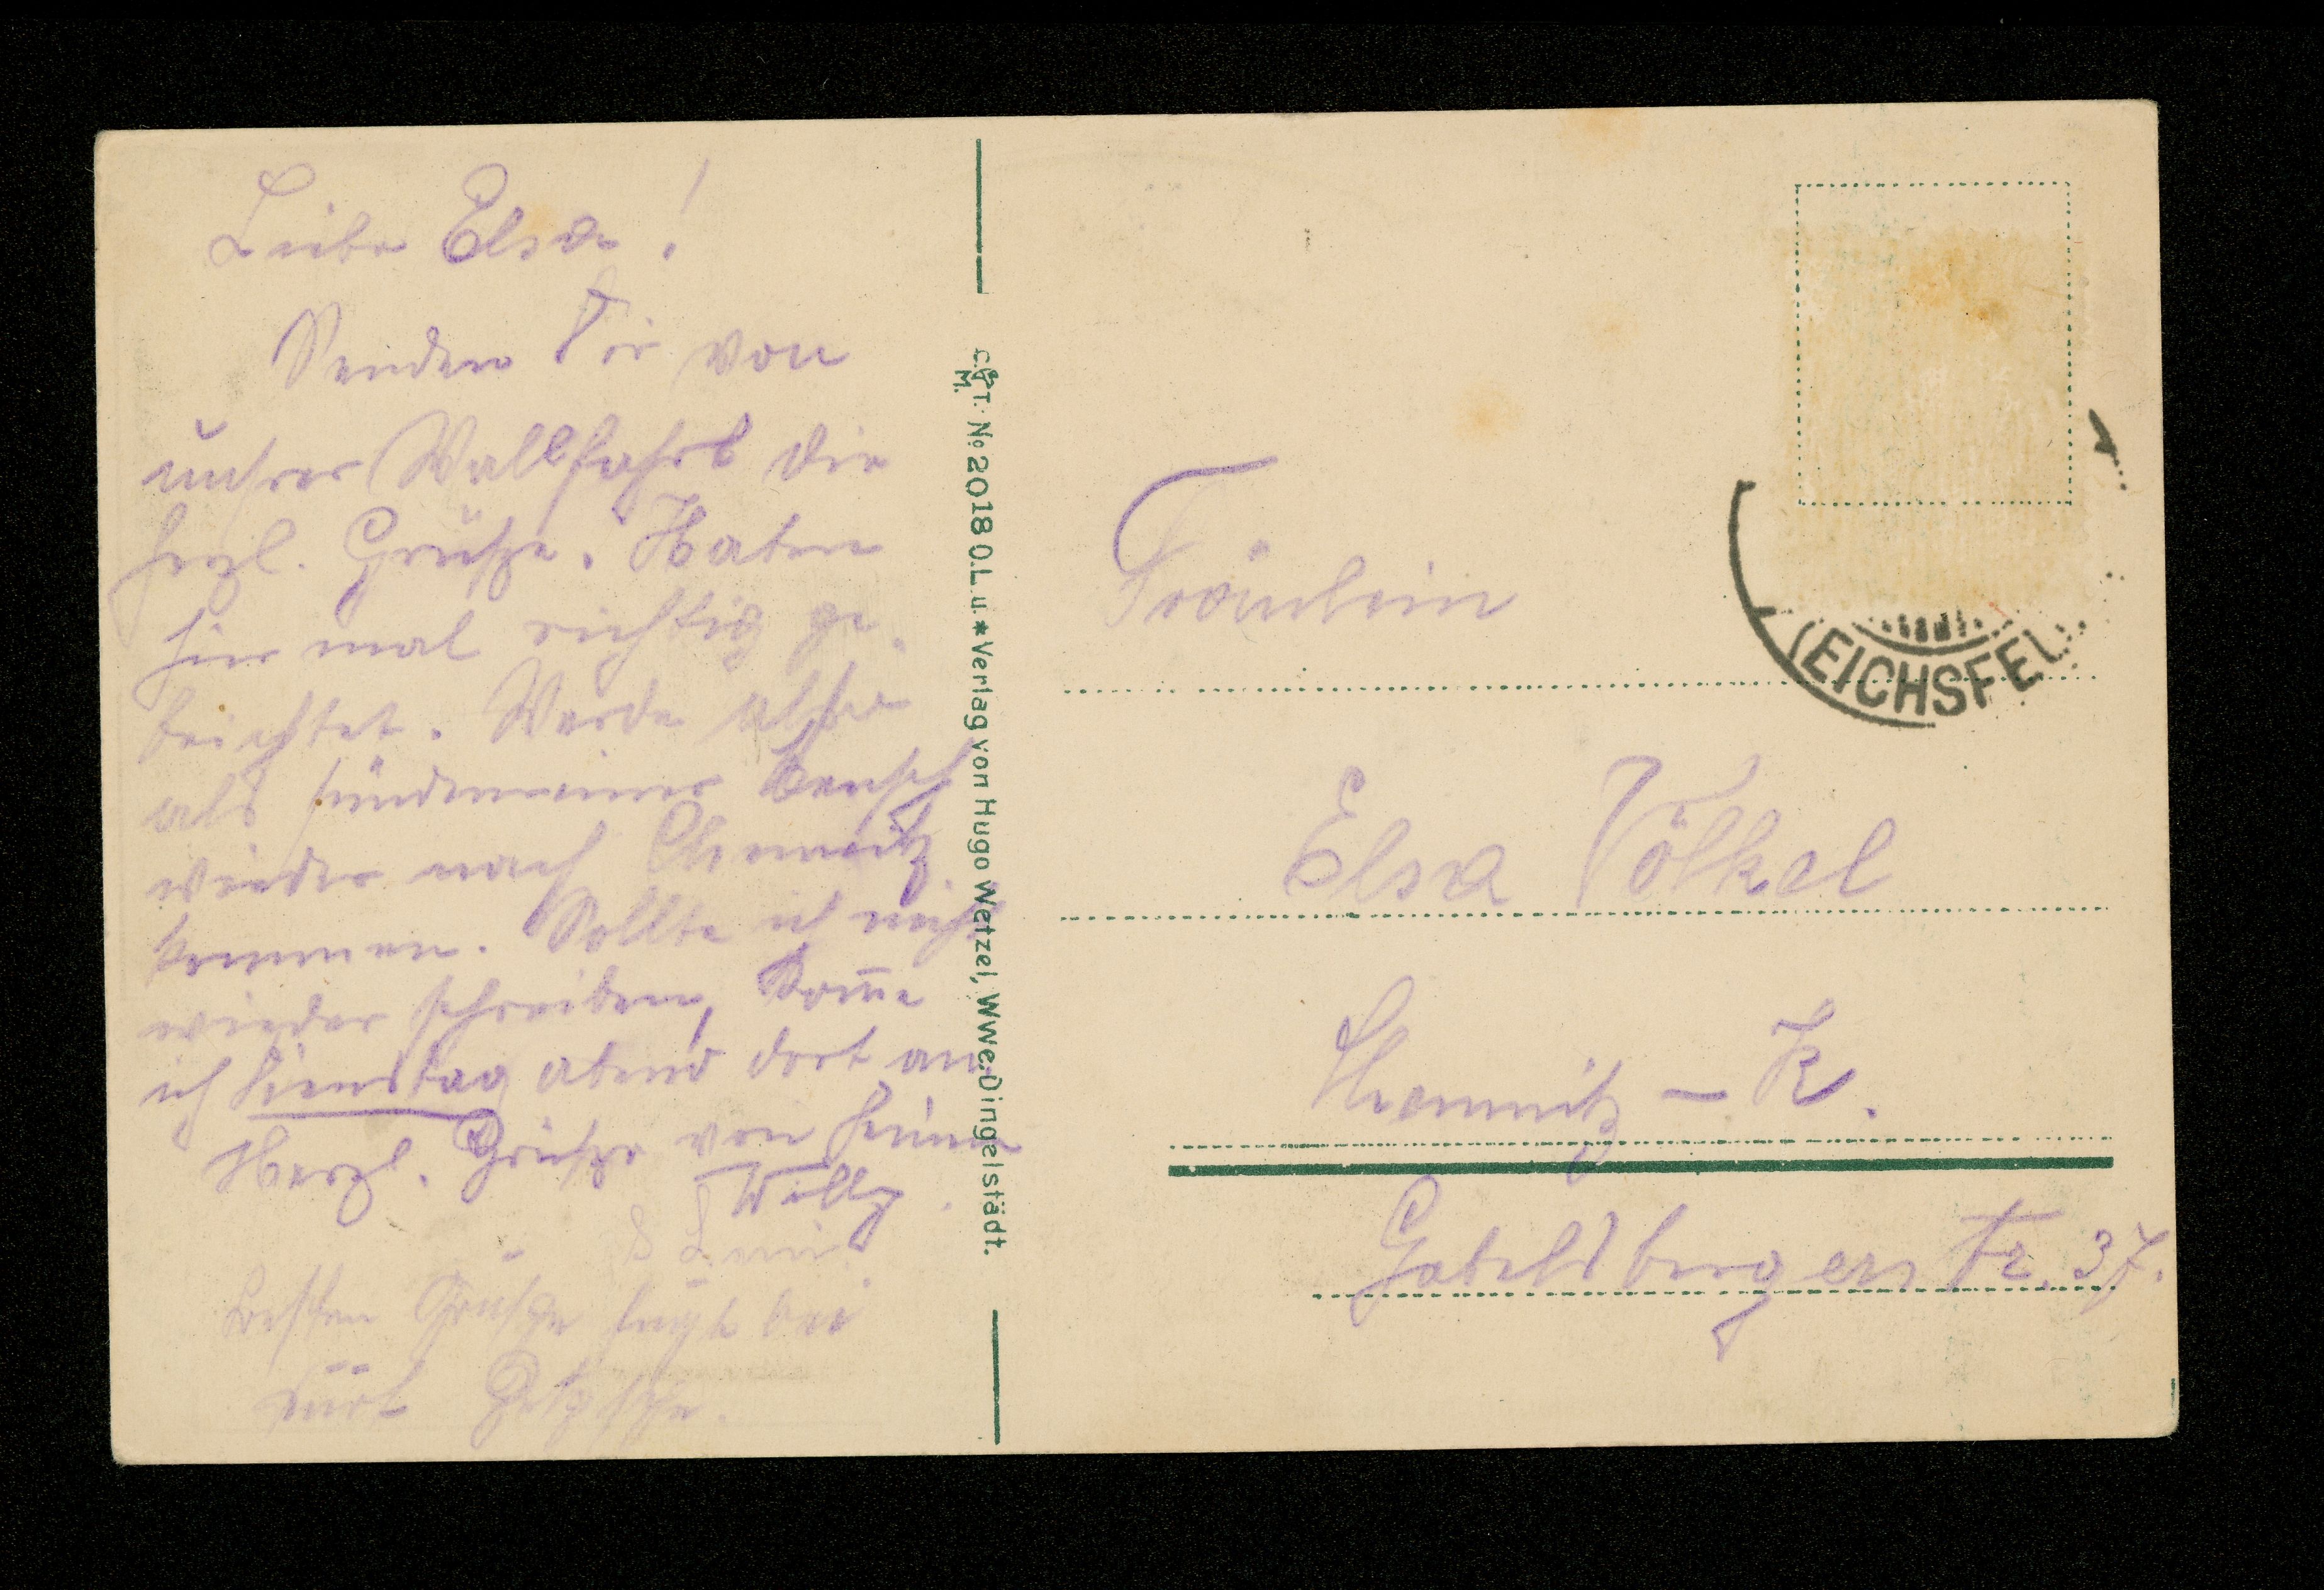 Liebe Elsa!
Senden Dir von
unsrer Wallfahrt die
herzl. Grüße. Haben
hier mal richtig ge-
beichtet. Werde also
als sündenreiner Mensch
wieder nach Chemnitz
kommen. Sollte ich nicht
wieder schreiben, kom̄e
ich Dienstag abend dort an.
Herzl. Grüße von Deinem
Willy.
Besten Grüße fügt bei
Kurt
C.&T. M. No. 2018 O.L.u.*Verlag von Hugo Wetzel, Wwe. Dingelstädt.
EICHSFEL
Fräulein
Elsa Völkel
Chemnitz – K.
Gabelsbergerstr. 37.